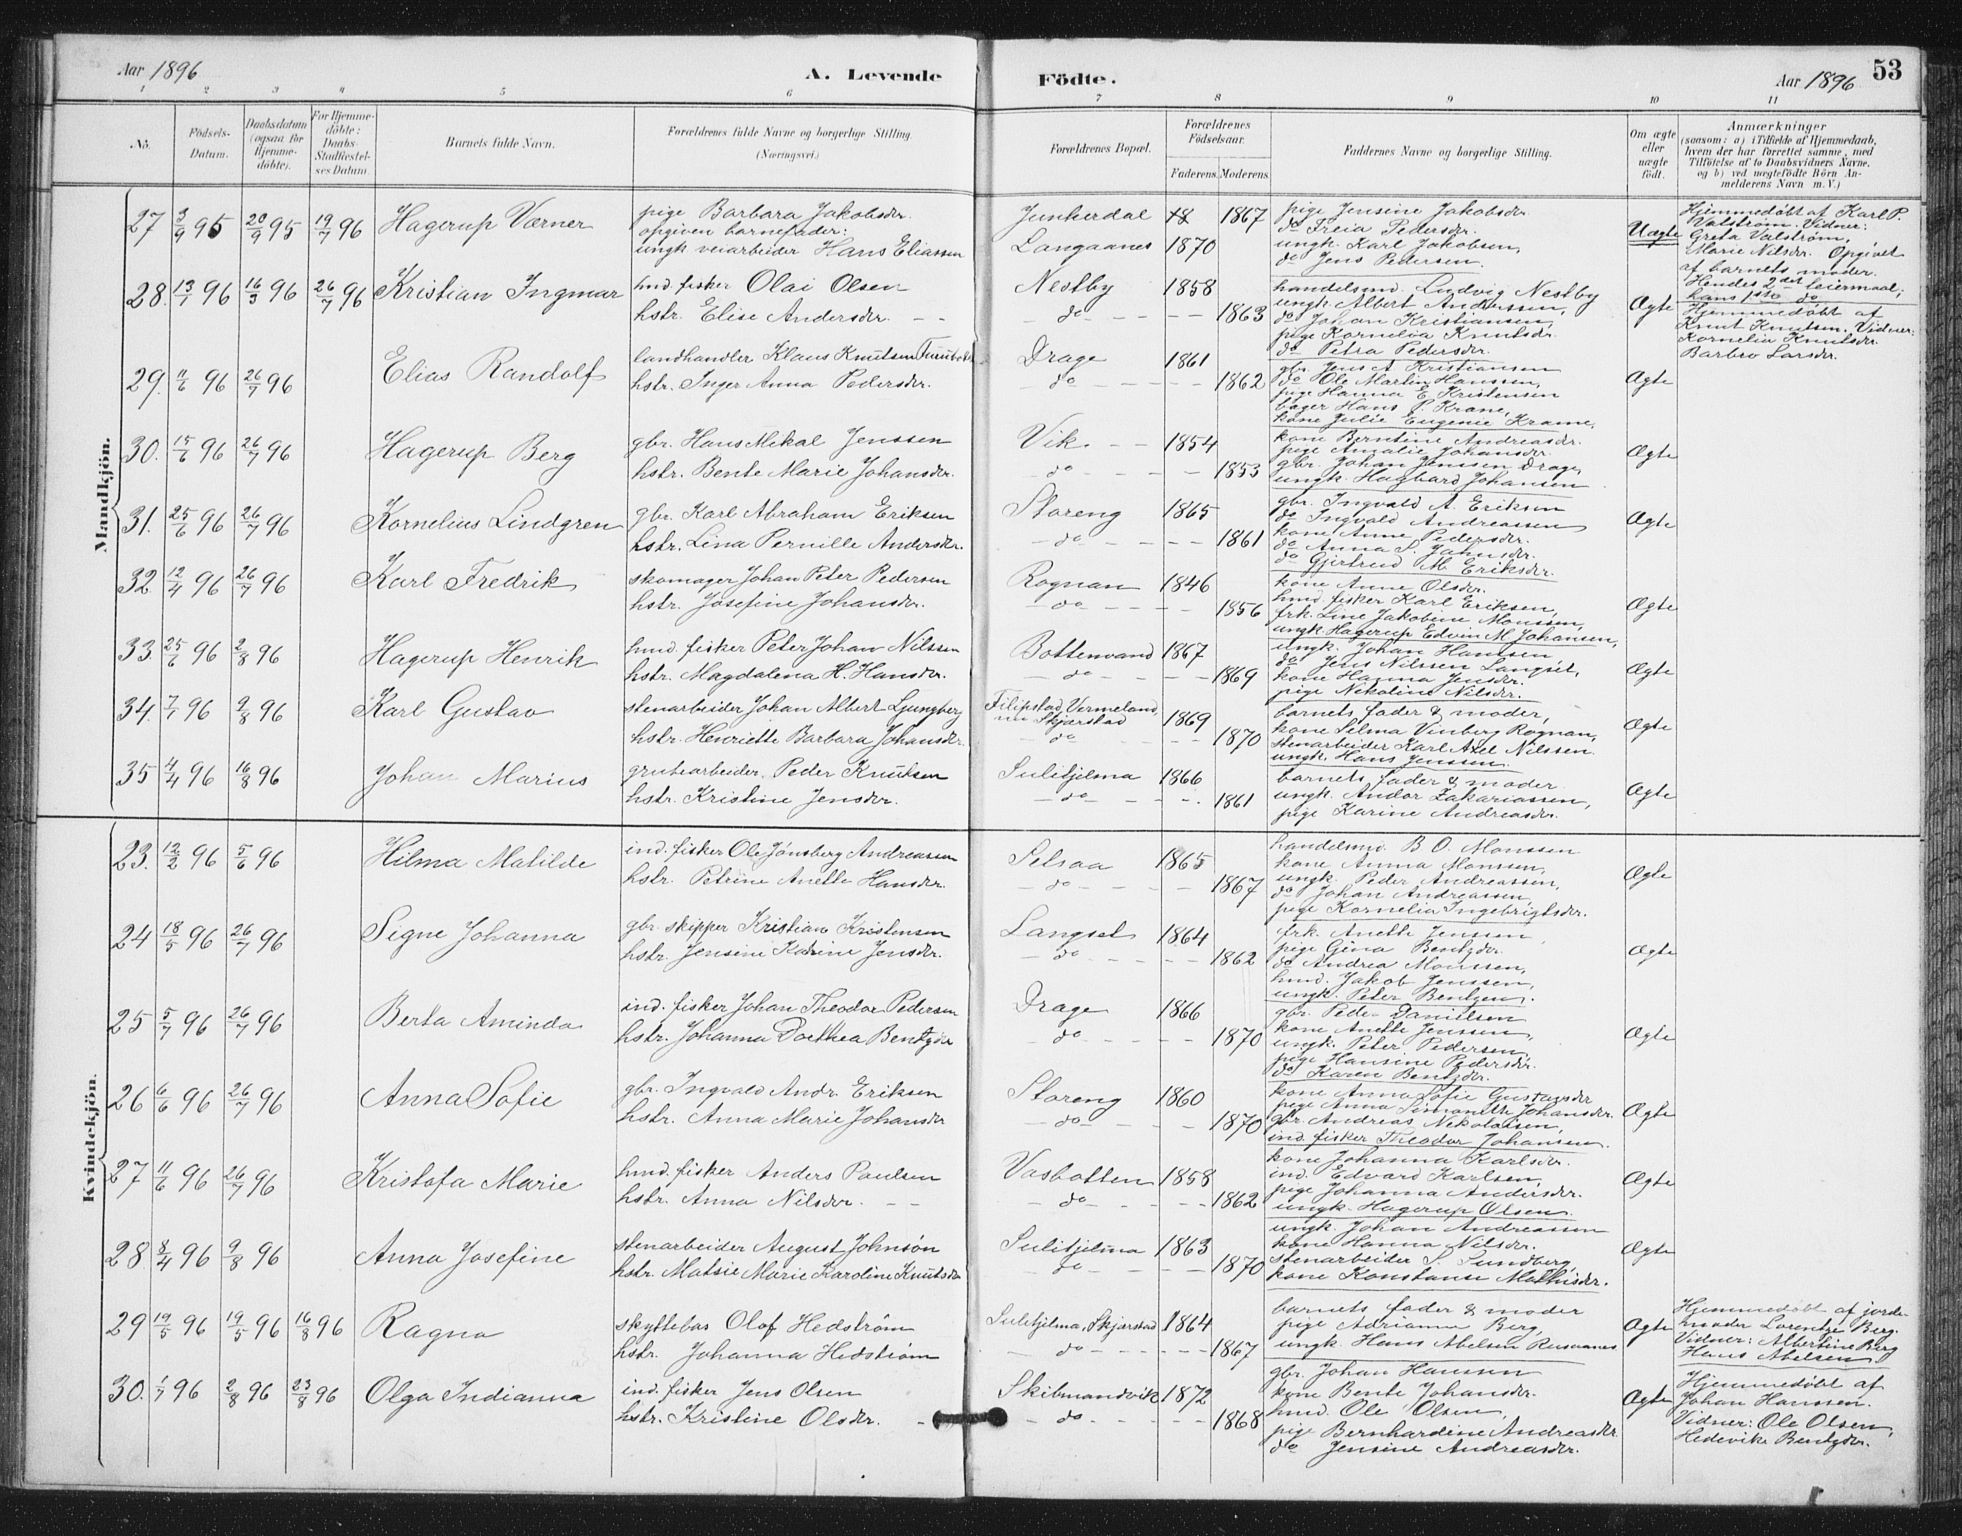 Aar 1896
A. Levende Födte.
Aar 1896
53
1 2 3 4 5 6 7 8 9 10 11
No.
Födsels-Datum.
Daabsdatum (ogsaa for Hjemme-döbte).
For Hjemme-döbte: Daabs-Stadfæstel-ses Datum.
Barnets fulde Navn.
Forældrenes fulde Navne og borgerlige Stilling. (Næringsvei.)
Forældrenes Bopæl.
Forældrenes Födselsaar.
Faderens. Moderens.
Faddernes Navne og borgerlige Stilling.
Om ægte eller uægte födt.
Anmærkninger
(saasom: a) i Tilfælde af Hjemmedaab, hvem der har forrettet samme, med Tilföielse af to Daabsvidners Navne, og b) ved uægtefödte Börn Anmelderens Navn m. V.)
Mandkjön.
27 3/9 95 20/9 95 19/7 96 Hagerup Værner
pige Barbara Jakobsdr.
opgiven barnefader:
ungk veiarbeider Hans Eliassen
Junkerdal 1867
Langaanes 1870
pige Jensine Jakobsdr.
do Freia Pedersdr.
ungk. Karl Jakobsen,
do Jens Pedersen.
Uægte
Hjemmedöbt af Karl P.
Valström. Vidner:
Greta Valström,
Marie Nilsdr. Opgivet
af barnets moder.
Hendes 2det leiermaal;
hans 1ste do
28. 13/1 96 16/3 96 26/7 96 Kristian Ingmar
hmd. fisker Olai Olsen
hstr. Elise Andersdr.
Nestby 1858
do 1863
handelsmd. Ludvig Nestby
ungk. Albert Andersen,
do Johan Kristiansen,
pige Kornelia Knutsdr.
do Petra Pedersdr.
Ægte
Hjemmedöbt af
Knut Knutsen. Vidner:
Kornelia Knutsdr.
Barbro Larsdr.
29. 11/6 96 26/7 96 Elias Randolf
landhandler Klaus Knutsen
hstr. Inger Anna Pedersdr.
Drage 1861
do 1862
gbr. Jens A Kristiansen
do Ole Martin Hansen,
pige Hanna E. Kristensen
bager Hans P. Krane,
kone Julie Eugenie Krane,
Ægte
30. 15/6 96 26/7 96 Hagerup Berg
gbr. Hans Mekal Jenssen
hstr. Bente Marie Johansdr.
Vik 1854
do 1853
kone Berntine Andreasdr.
pige Amalie Johansdr.
gbr. Johan Jenssen Drage,
ungk. Hagbard Johansen
Ægte
31. 25/6 96 26/7 96 Kornelius Lindgren
gbr. Karl Abraham Eriksen
hstr. Lina Pernille Andersdr.
Storeng 1865
do 1861
gbr. Ingvald A. Eriksen
do Ingvald Andreassen
kone Anne Pedersdr.
do Anna S. Jahnsdr.
do Gjertrud M. Eriksdr.
Ægte
32 12/4 96 26/7 96 Karl Fredrik
skomager Johan Peter Pedersen
hstr. Josefine Johansdr.
Rognan 1846
do 1856
kone Anne Olsdr.
hmd. fisker Karl Eriksen,
frk. Line Jakobine Monssen,
ungk. Hagerup Edvin M Johansen,
Ægte
33. 25/6 96 2/8 96 Hagerup Henrik
hmd. fisker Peter Johan Nilssen
hstr. Magdalena H. Hansdr.
Bottenvand 1867
do 1869
ungk. Johan Hanssen
do Jens Nilssen Langset,
kone Hanna Jensdr.
pige Nekoline Nilsdr.
Ægte
34. 7/7 96 9/8 96 Karl Gustav
stenarbeider Johan Albert Ljungberg
hstr. Henriette Barbara Johansdr.
Filipstad, Vermeland,
nu Skjærstad 1869
do 1870
barnets fader & moder,
kone Selma Vinberg Rognan,
stenarbeider Karl Axel Nilssen
ungk. Hans Jenssen.
Ægte
35 4/4 96 16/8 96 Johan Marius
grubearbeider. Peder Knutsen
hstr. Kristine Jensdr.
Sulitjelma 1866
do 1861
barnets fader & moder
ungk. Andor Zakariassen,
pige Karine Andreasdr.
Ægte
Kvindekjön.
23. 12/2 96 5/6 96 Hilma Matilde
ind. fisker Ole Jönsberg Andreassen
hstr. Petrine Anette Hansdr.
Selsaa 1865
do 1867
handelsmd. B O. Monssen
kone Anna Monssen,
ungk. Peder Andreassen,
do Johan Andreassen,
pige Kornelia Ingebrigtsdr.
Ægte
24 18/5 96 26/7 96 Signe Johanna
gbr. skipper Kristian Kristensen
hstr. Jensine Katrine Jensdr.
Langset 1864
do 1862
frk. Anette Jenssen,
pige Gina Bentzdr.
do Andrea Monssen,
hmd. Jakob Jenssen,
ungk. Peter Bentzen.
Ægte
25 5/7 96 26/7 96 Berta Aminda
ind. fisker Johan Theodor Pedersen
hstr. Johanna Dorthea Bentzdr
Drage 1866
do 1870
gbr. Peder Danielsen
kone Anette Jenssen,
ungk. Peter Pedersen,
pige Hansine Pedersdr.
do Karen Bentzdr.
Ægte
26 6/6 96 26/7 96 Anna Sofie
gbr. Ingvald Andr. Eriksen
hstr. Anna Marie Johansdr
Storeng 1860
do 1870
kone Anna Sofie Gustavsdr
pige Anna Simonette Johansdr.
gbr. Andreas Nekolaisen,
ind. fisker Theodor Johansen.
Ægte
27 11/6 96 26/7 96 Kristofa Marie
hmd. fisker Anders Paulsen
hstr. Anna Nilsdr.
Vasbotten 1858
do 1862
kone Johanna Karlsdr.
ind. Edvard Karlsen,
pige Johanna Andersdr.
ungk. Hagerup Olsen.
Ægte
28 8/4 96 9/8 96 Anna Josefine
stenarbeider August Johnsön
hstr. Matsie Marie Karoline Knutsdr
Sulitjelma 1863
do 1870
ungk. Johan Andreassen
kone Hanna Nilsdr.
stenarbeider S. Sundberg,
kone Konstanse Mathisdr.
Ægte
29 19/5 96 19/5 96 16/8 96 Ragna
skyttebas Olof Hedström
hstr. Johanna Hedström
Sulitjelma, Skjærstad 1864
do 1867
barnets fader & moder
pige Adrianna Berg,
ungk. Hans Abelsen Rusvanes
Ægte
Hjemmedöbt af jorde-
moder Lorentze Berg.
Vidner: Albertine Berg
Hans Abelsen
30. 1/7 96 2/8 96 23/8 96 Olga Indianna
ind. fisker Jens Olsen
hstr. Kristine Olsdr.
Skibmandvik 1872
do 1868
gbr. Johan Hanssen
kone Bente Johansdr.
hmd. Ole Olsen,
pige Bernhardine Andreasdr
do Jensine Andreasdr.
Ægte
Hjemmedöbt af
Johan Hanssen.
Vidner: Ole Olsen,
Hedevike Bentzdr.